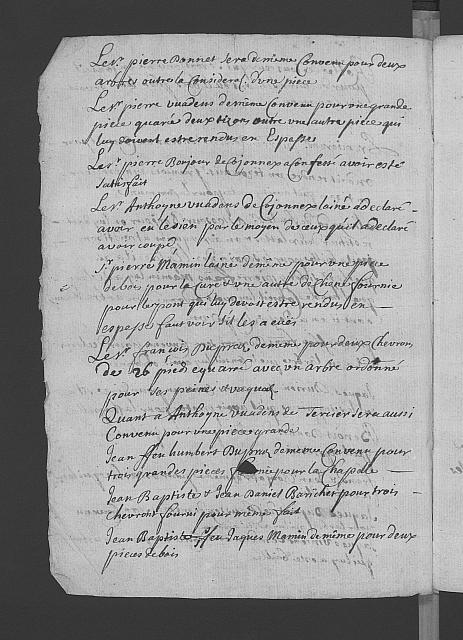 Le sr. pierre Bonnet sera de meme Convenu pour deux
arbres outre la Considera(. d'une piece
Le sr. pierre vuadens de meme Convenu pour une grande
piece quaré deux tiers outre une autre piece qui
luy doivent estre rendus en Espesses
Le sr. pierre Bonjour de Cojonnex a Confessé avoir esté
satisfait
Le sr. Anthoyne vuadens de Cojonnex lainé a declaré
avoir eu le sien par le moyen de ceux quil a declaré
avoir coupé
Sr. pierre Mamin lainé de meme pour une piece
de bois pour la cure et une autre de chene fournie
pour le pont qui luy doivent estre rendus en
espesses faut voir sil les a eües
Le sr. françois de meme pour deux chevrons
de 26 pied equarré avec vn arbre ordonné
pour ses peines
Quant a Anthoyne vuadens de sera aussi
Convenu pour vne piece grande
Jean ffeu humbert de meme Convenu pour
trois grandes pieces pour la Chapelle
Jean Baptiste & Jean Daniel pour trois
chevrons fourni pour meme fait
Jean Baptiste ffeu Jaques Mamin de meme pour deux
pieces de bois